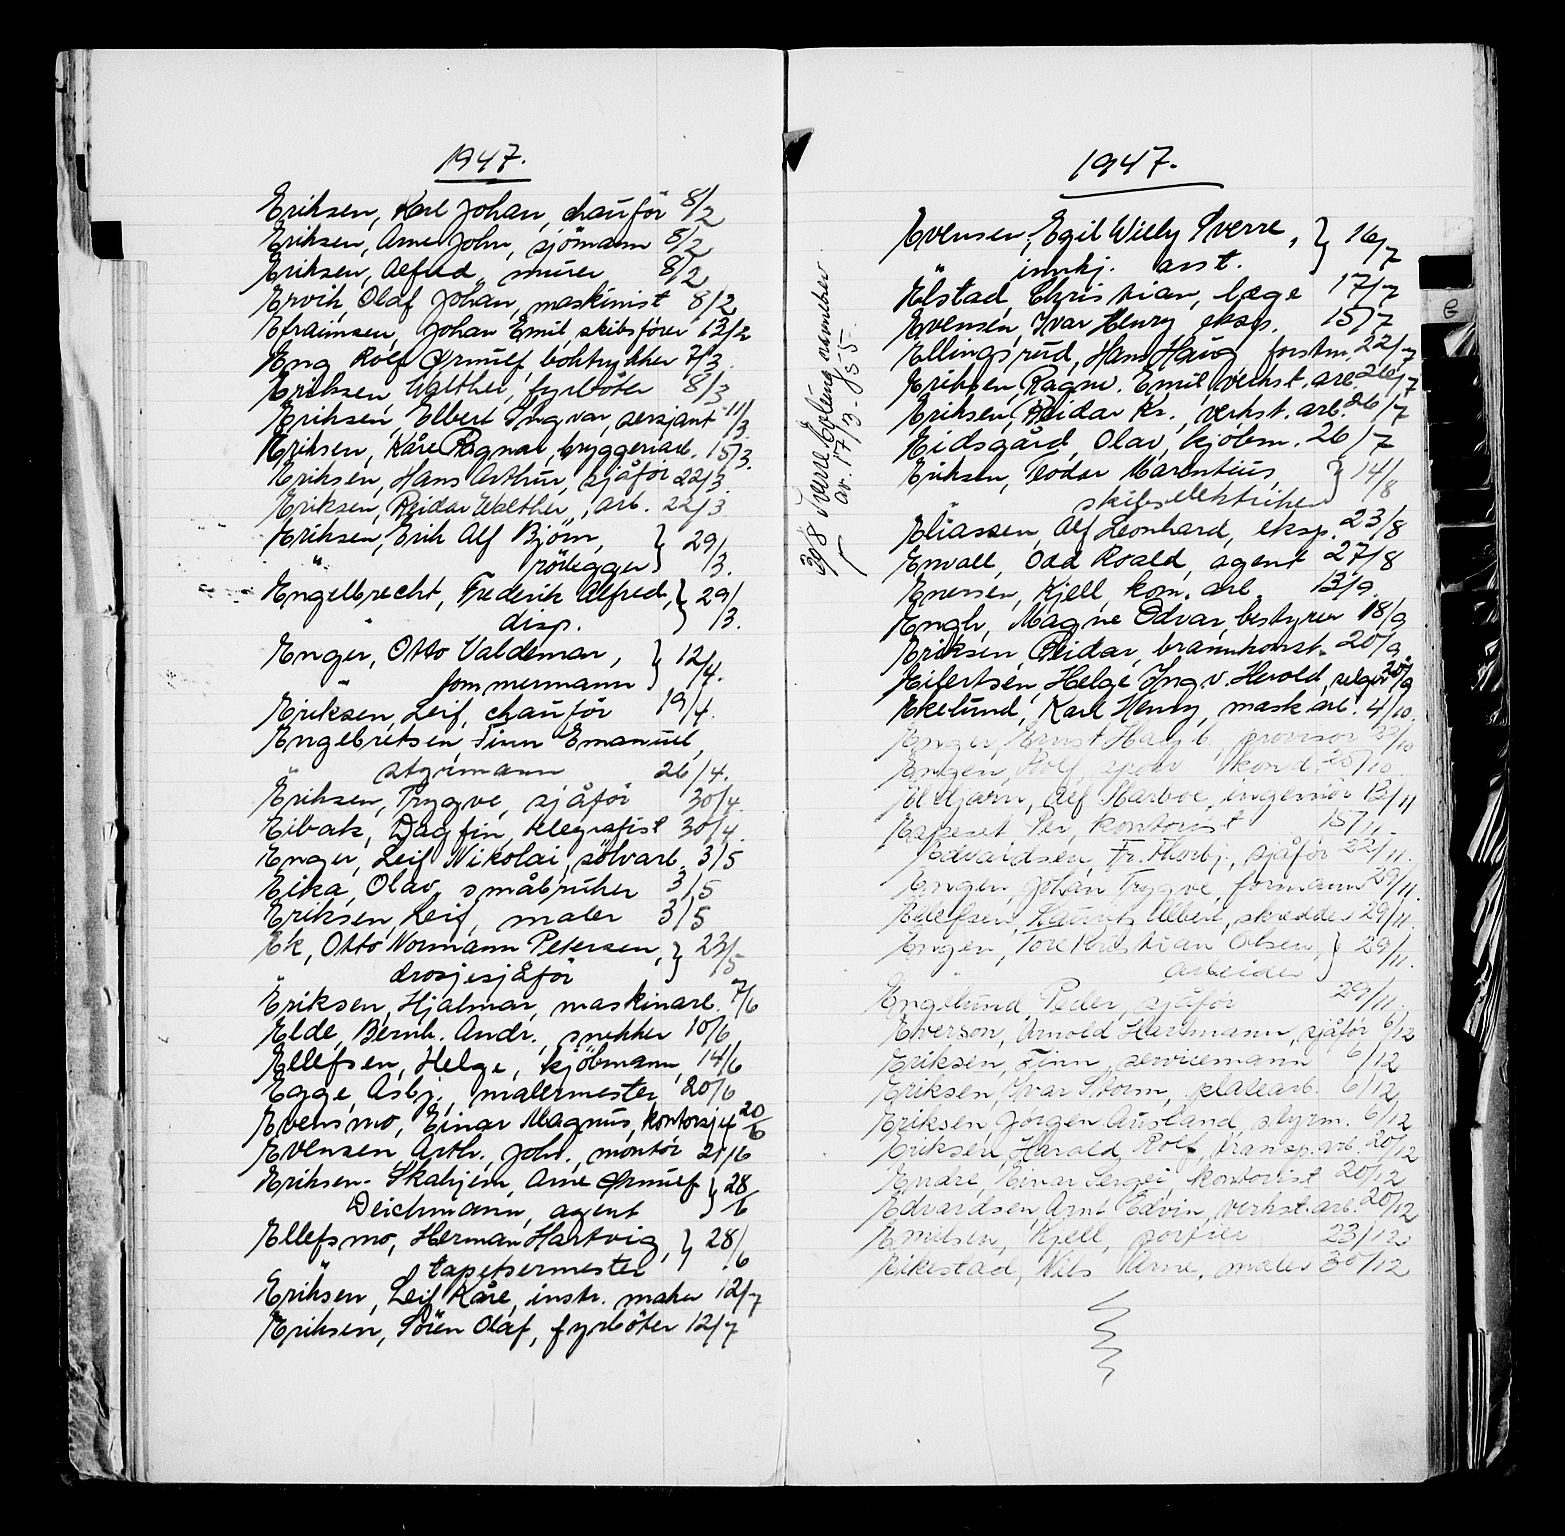 1947.
Eriksen, Karl Johan, chauför 8/2
Eriksen, Arne John, sjömann 8/2
Eriksen, Alfred, murer 8/2
Ervik, Olaf Johan, maskinist 8/2
Efraimsen, Johan Emil, skibsförer 13/2
Eng Rolf Ørnulf, boktrykker 7/3.
Eriksen Walther, fyrböter 8/3
Eriksen, Elbert Ingvar, sersjant 11/3
Eriksen, Kåre Ragnar, bryggeriarb. 15/3.
Eriksen, Hans Arthur, sjåför 22/3.
Eriksen, Reidar Walther, arb. 22/3
Eriksen, Erik Alf Björn, } 29/3.
rörlegger
Engelbrecht, Frederik Alfred, } 29/3.
disp.
Enger, Otto Valdemar, } 12/4.
tömmermann
Eriksen, Leif, chauför 19/4.
Engebretsen Finn Emanuel,
styrmann 26/4.
Eriksen, Trygve, sjåför 30/4.
Eibak, Dagfin, telegrafist 30/4.
Enger, Leif Nikolai, sölvarb. 3/5
Eika, Olav, småbruker 3/5
Eriksen, Leif, maler 3/5
Ek, Otto Normann Petersen, } 23/5
drosjesjåför
Eriksen, Hjalmar, maskinarb. 7/6
Elde, Bernh. Andr., snekker 10/6
Ellefsen, Helge, kjöbmann, 14/6
Egge, Asbj., malermester 20/6
Evensmo, Einar Magnus, kontorsjef 20/6
Evensen Arth. Joh., montör 21/6
Eriksen-Skahjem, Arne Ørnulf } 28/6
Deichmann, agent
Ellefsmo, Herman Hartvig, } 28/6
tapetsermester
Eriksen, Leif Kåre, instr. maker 12/7
Eriksen, Sören Olaf, fyrböter 12/7
1947.
Evensen, Egil Willy Sverre, } 16/7
innkj. ass't.
Elstad, Christian, læge 17/7
Evensen, Ivar Henry, eksp. 15/7
Ellingsrud, Hans Haug, forstm. 22/7
Eriksen, Ragnv. Emil, verkst. arb. 26/7
Eriksen, Reidar Kr., verkst. arb. 26/7
Eidsgård, Olav, kjöbm. 26/7
Eriksen, Teodor Marentius, } 14/8
skibselektriker
Eliassen, Alf Leonhard, eksp. 23/8
Envall, Odd Roald, agent 27/8
Enersen, Kjell, kom. arb. 13/9.
Engh, Magne Odvar, bestyrer 18/9
Eriksen, Reidar, brannkonst. 20/9.
Eilertsen, Helge Ingv. Herold, selger 20/9
Ekelund, Karl Henry, mask arb. 4/10.
Enger, Ernst provisor /10
Engen, Rolf, spor kond. 25/10.
Alf ingeniör 13/11
Per, kontorist 15/11.
Edvardsen, Fr. Thorbj., sjåför 22/11.
Engen, Johan Trygve, formann 29/11.
Ellefsen, Albert, skredder 29/11.
Engen, Tore Kristian Olsen, } 29/11.
arbeider
Engelund, Peder, sjåför 29/11.
Everson, Arnold Hermann, sjåför 6/12
Eriksen, Finn, servicemann 6/12
Eriksen, Ivar Storm, platearb. 6/12.
Eriksen, Jørgen Ausland, styrm. 6/12
Eriksen, Harald Rolf, transp. arb. 20/12
Endre, Einar Sergei, kontorist 20/12
Edvardsen, Arnt Edvin, verkst. arb. 20/12
Emilsen, Kjell, portier 23/12
Eikestad, Nils Arne, maler 30/12
Sverre
av. 17/3-55.